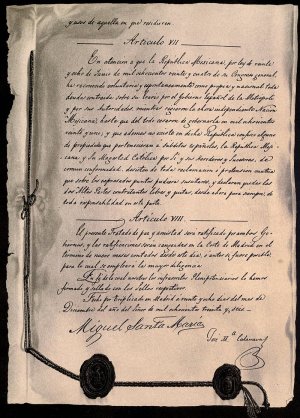 y usos de aquella en que residieren
Articulo VII
En atencion a que la Republica Mexicana por ley de veinte
y ocho de Junio de mil ochocientos veinte y cuatro de su Congreso general,
ha reconocido voluntaria y espontaneamente como propia y nacional toda
deuda contraida sobre su Erario por el Gobierno español de la Metropoli
y por sus autoridades, mientras rigieron la ahora independiente Nacion
Mexicana, hasta que del todo cesaron de gobernarla en mil ochocientos
veinte y uno; y que ademas no existe en dicha Republica confisco alguno
de propiedad que perteneciera a subditos españoles, la Republica Mexi-
cana, y Su Magestad Catolica por Si, y sus herederos y Sucesores, de
comun conformidad, desisten de toda reclamacion o pretension mutua
que sobre los expresados puntos pudiera suscitarse, y declaran quedar las
dos Altas Partes contratantes libres y quitas, desde ahora para siempre, de
toda responsabilidad en esta parte.
Articulo VIII
El presente Tratado de paz y amistad será ratificado por ambos Go-
biernos, y las ratificaciones seran cangeadas en la Corte de Madrid en el
termino de nueve meses contados desde este dia, o antes si fuere posible,
para lo cual se empleará la mayor diligencia.
En fe de lo cual nosotros los infrascritos Plenipotenciarios lo hemos
firmado y sellado con los Sellos respectivos.
Fecho por triplicado en Madrid a veinte y ocho dias del mes de
Diciembre del año del Señor de mil ochocientos treinta y seis
Miguel Santa Maria
José Mª Calatrava